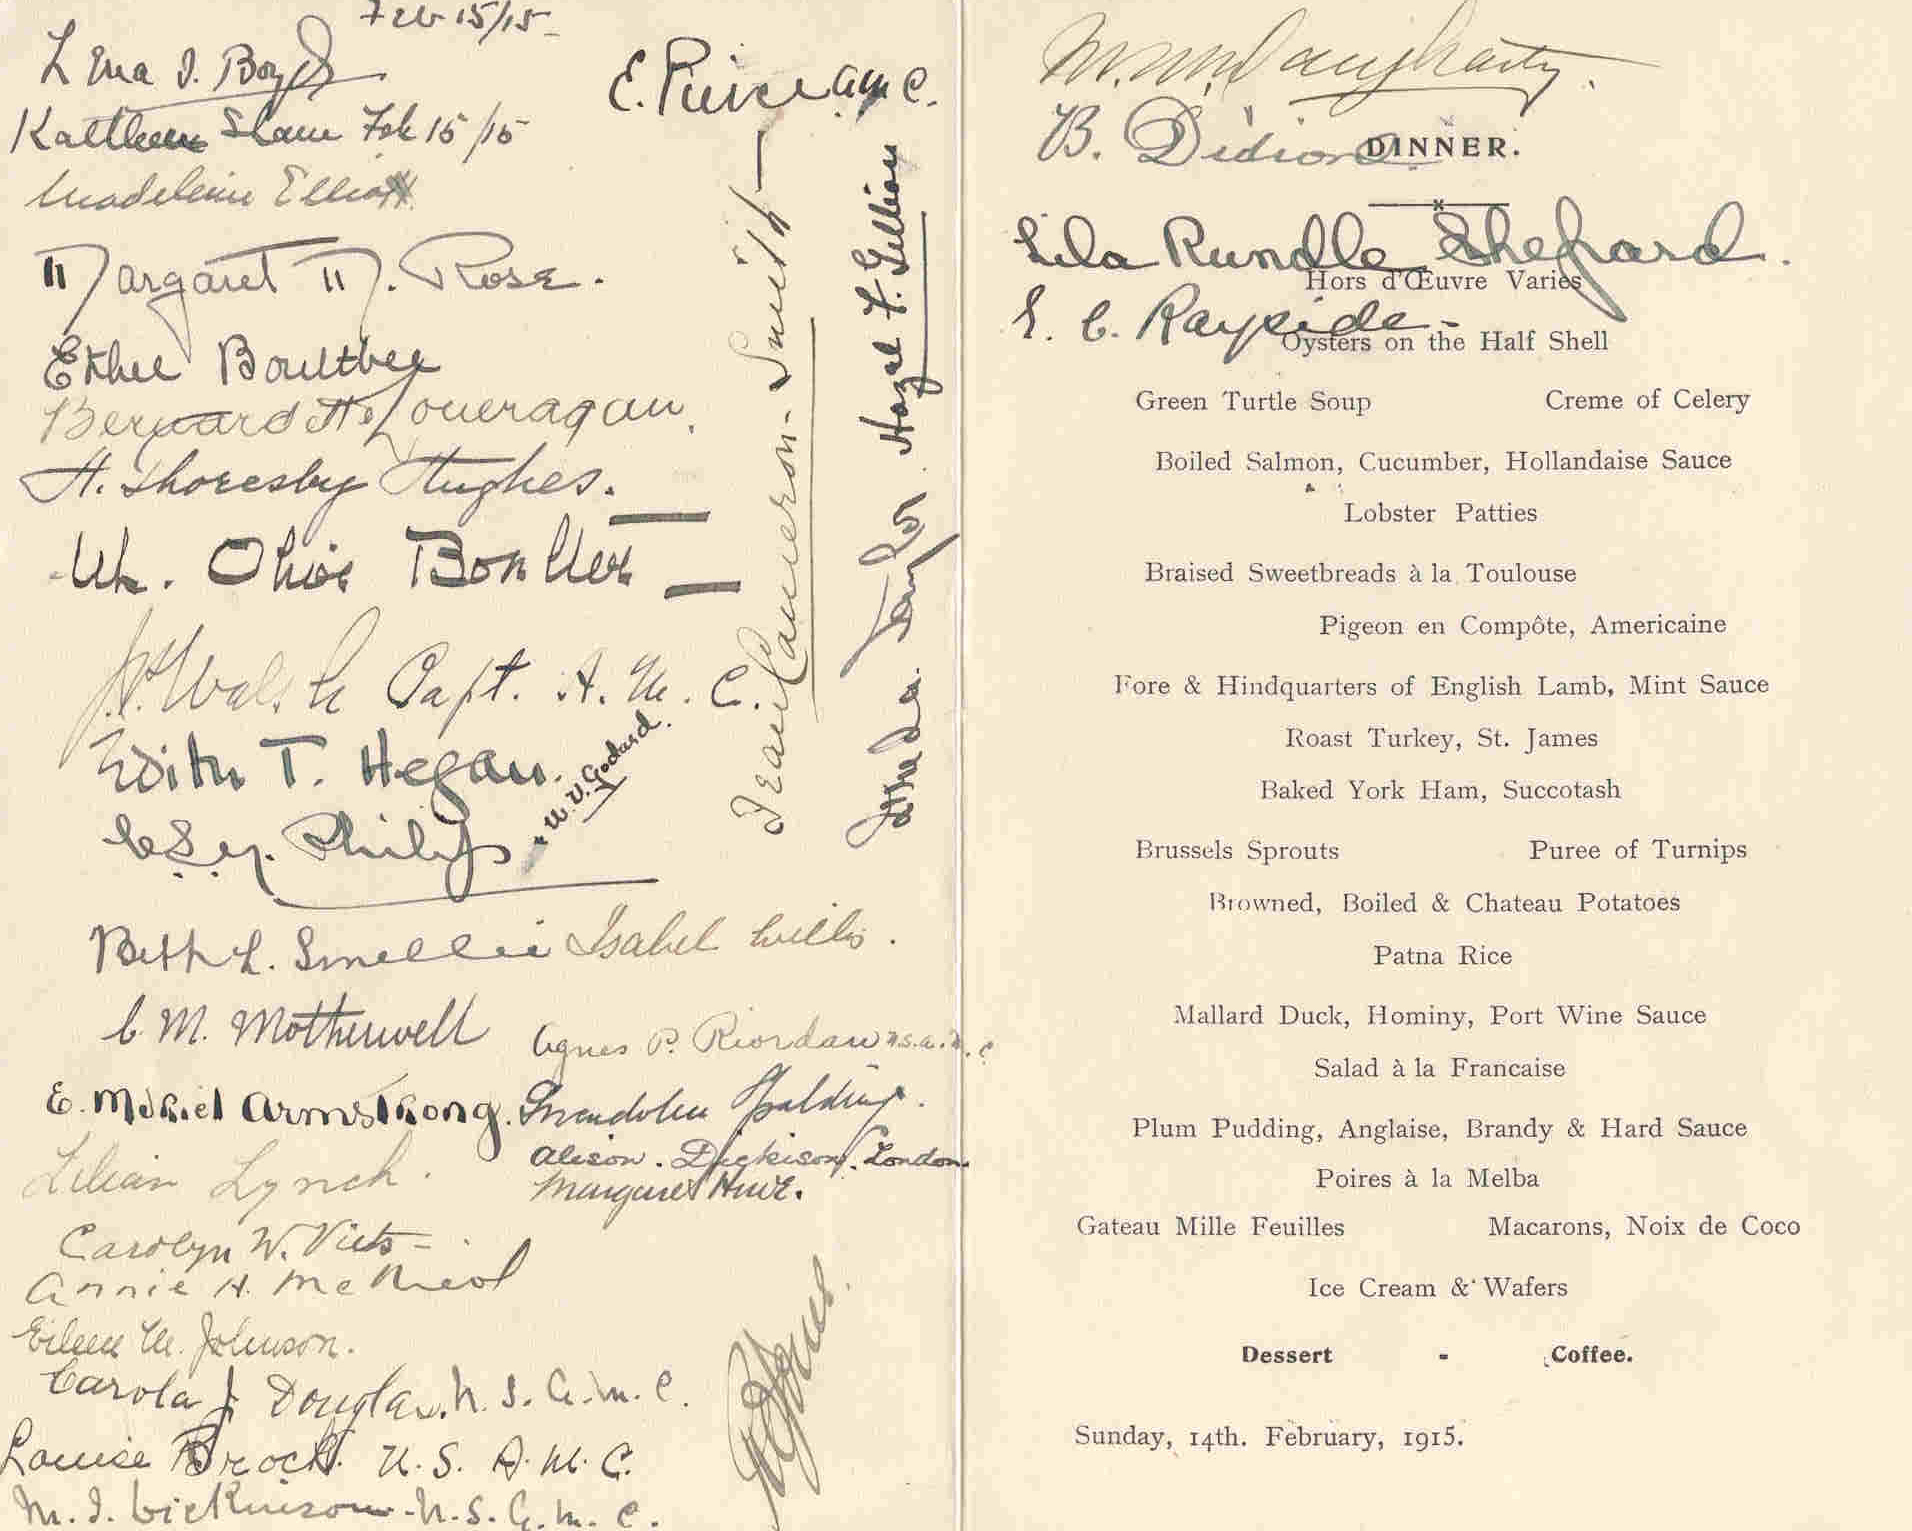 Feb 15/15
Lena I. Boyd
Kathleen Feb 15/15
Madeleine Elliott
Margaret M. Rose.
Ethel Boultbee
Bernard
H. Thoresby Hughes.
Walsh Capt. A. M. C.
Edith T. Hegan.
Philips
W. V. Godard.
Beth L. Smellie
Isabel Willis.
C M. Motherwell
Agnes P. Riordan n.s.a.m.c
E. Muriel Armstrong.
Gwendolen Spalding.
Alison. Dickison. London.
Lilian Lynch.
Margaret
Carolyn W. Viets
Annie H. McNicol
Eileen M. Johnson.
Carola J Douglas. N. S. A. M. C.
Louise Brock. N. S. A. M. C.
M. I. Dickinson. N. S. A. M. C.
E. A M C.
Jean Cameron-Smith
Hazel F. Gillian
M. M. Daugherty.
B. Didion
DINNER.
Lila Rundle Shepard.
Hors d'Œuvre Varies
E. C. Rayside
Oysters on the Half Shell
Green Turtle Soup Creme of Celery
Boiled Salmon, Cucumber, Hollandaise Sauce
Lobster Patties
Braised Sweetbreads à la Toulouse
Pigeon en Compôte, Americaine
Fore & Hindquarters of English Lamb, Mint Sauce
Roast Turkey, St. James
Baked York Ham, Succotash
Brussels Sprouts Puree of Turnips
Browned, Boiled & Chateau Potatoes
Patna Rice
Mallard Duck, Hominy, Port Wine Sauce
Salad à la Francaise
Plum Pudding, Anglaise, Brandy & Hard Sauce
Poires à la Melba
Gateau Mille Feuilles Macarons, Noix de Coco
Ice Cream & Wafers
Dessert - Coffee.
Sunday, 14th. February, 1915.